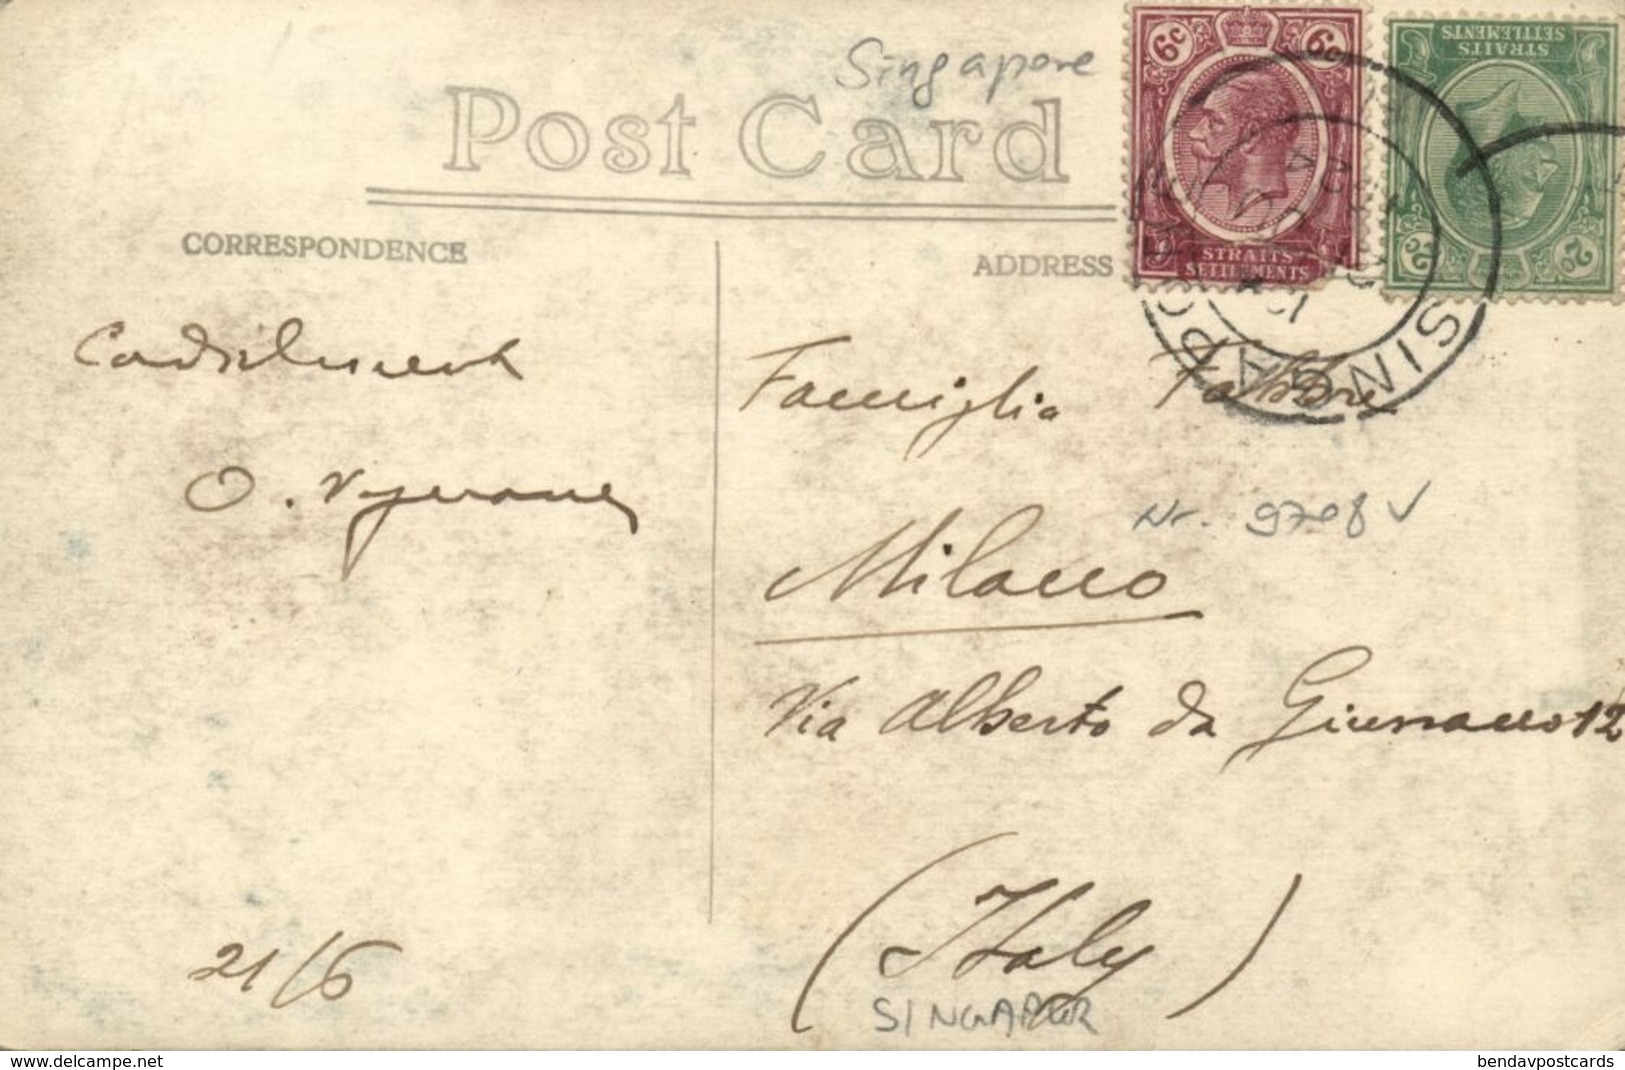 Singapore
Post Card
6c 6c
STRAITS
SETTLEMENTS
STRAITS
SETTLEMENTS
2c 2c
SINGAPO
CORRESPONDENCE
ADDRESS
Cordialmente
O.
21/6
Famiglia Fabbri
Nr. 9708
Milano
Via Alberto da Giussano 12
(Italy)
SINGAPUR
www.delcampe.net
bendavpostcards